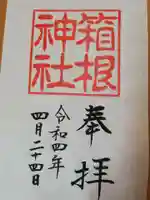 箱根
神社
奉拝
令和四年
四月二十四日